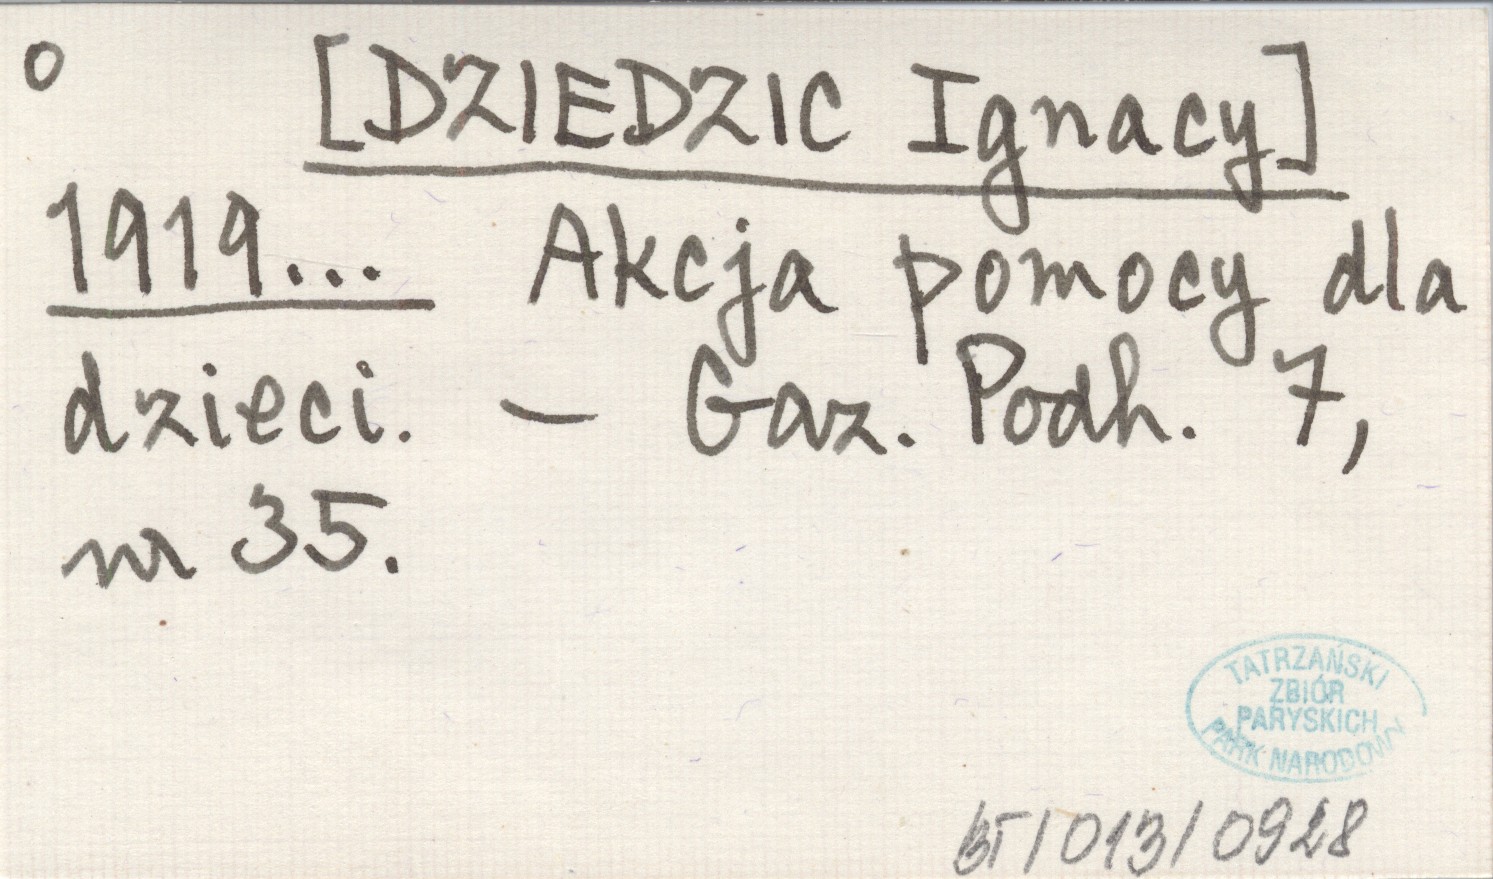 o [DZIEDZIC Ignacy]
1919... Akcja pomocy dla
dzieci. – Gaz. Podh. 7,
nr 35.
TATRZAŃSKI
ZBIÓR
PARYSKICH
PARK NARODOWY
BT/013/0928